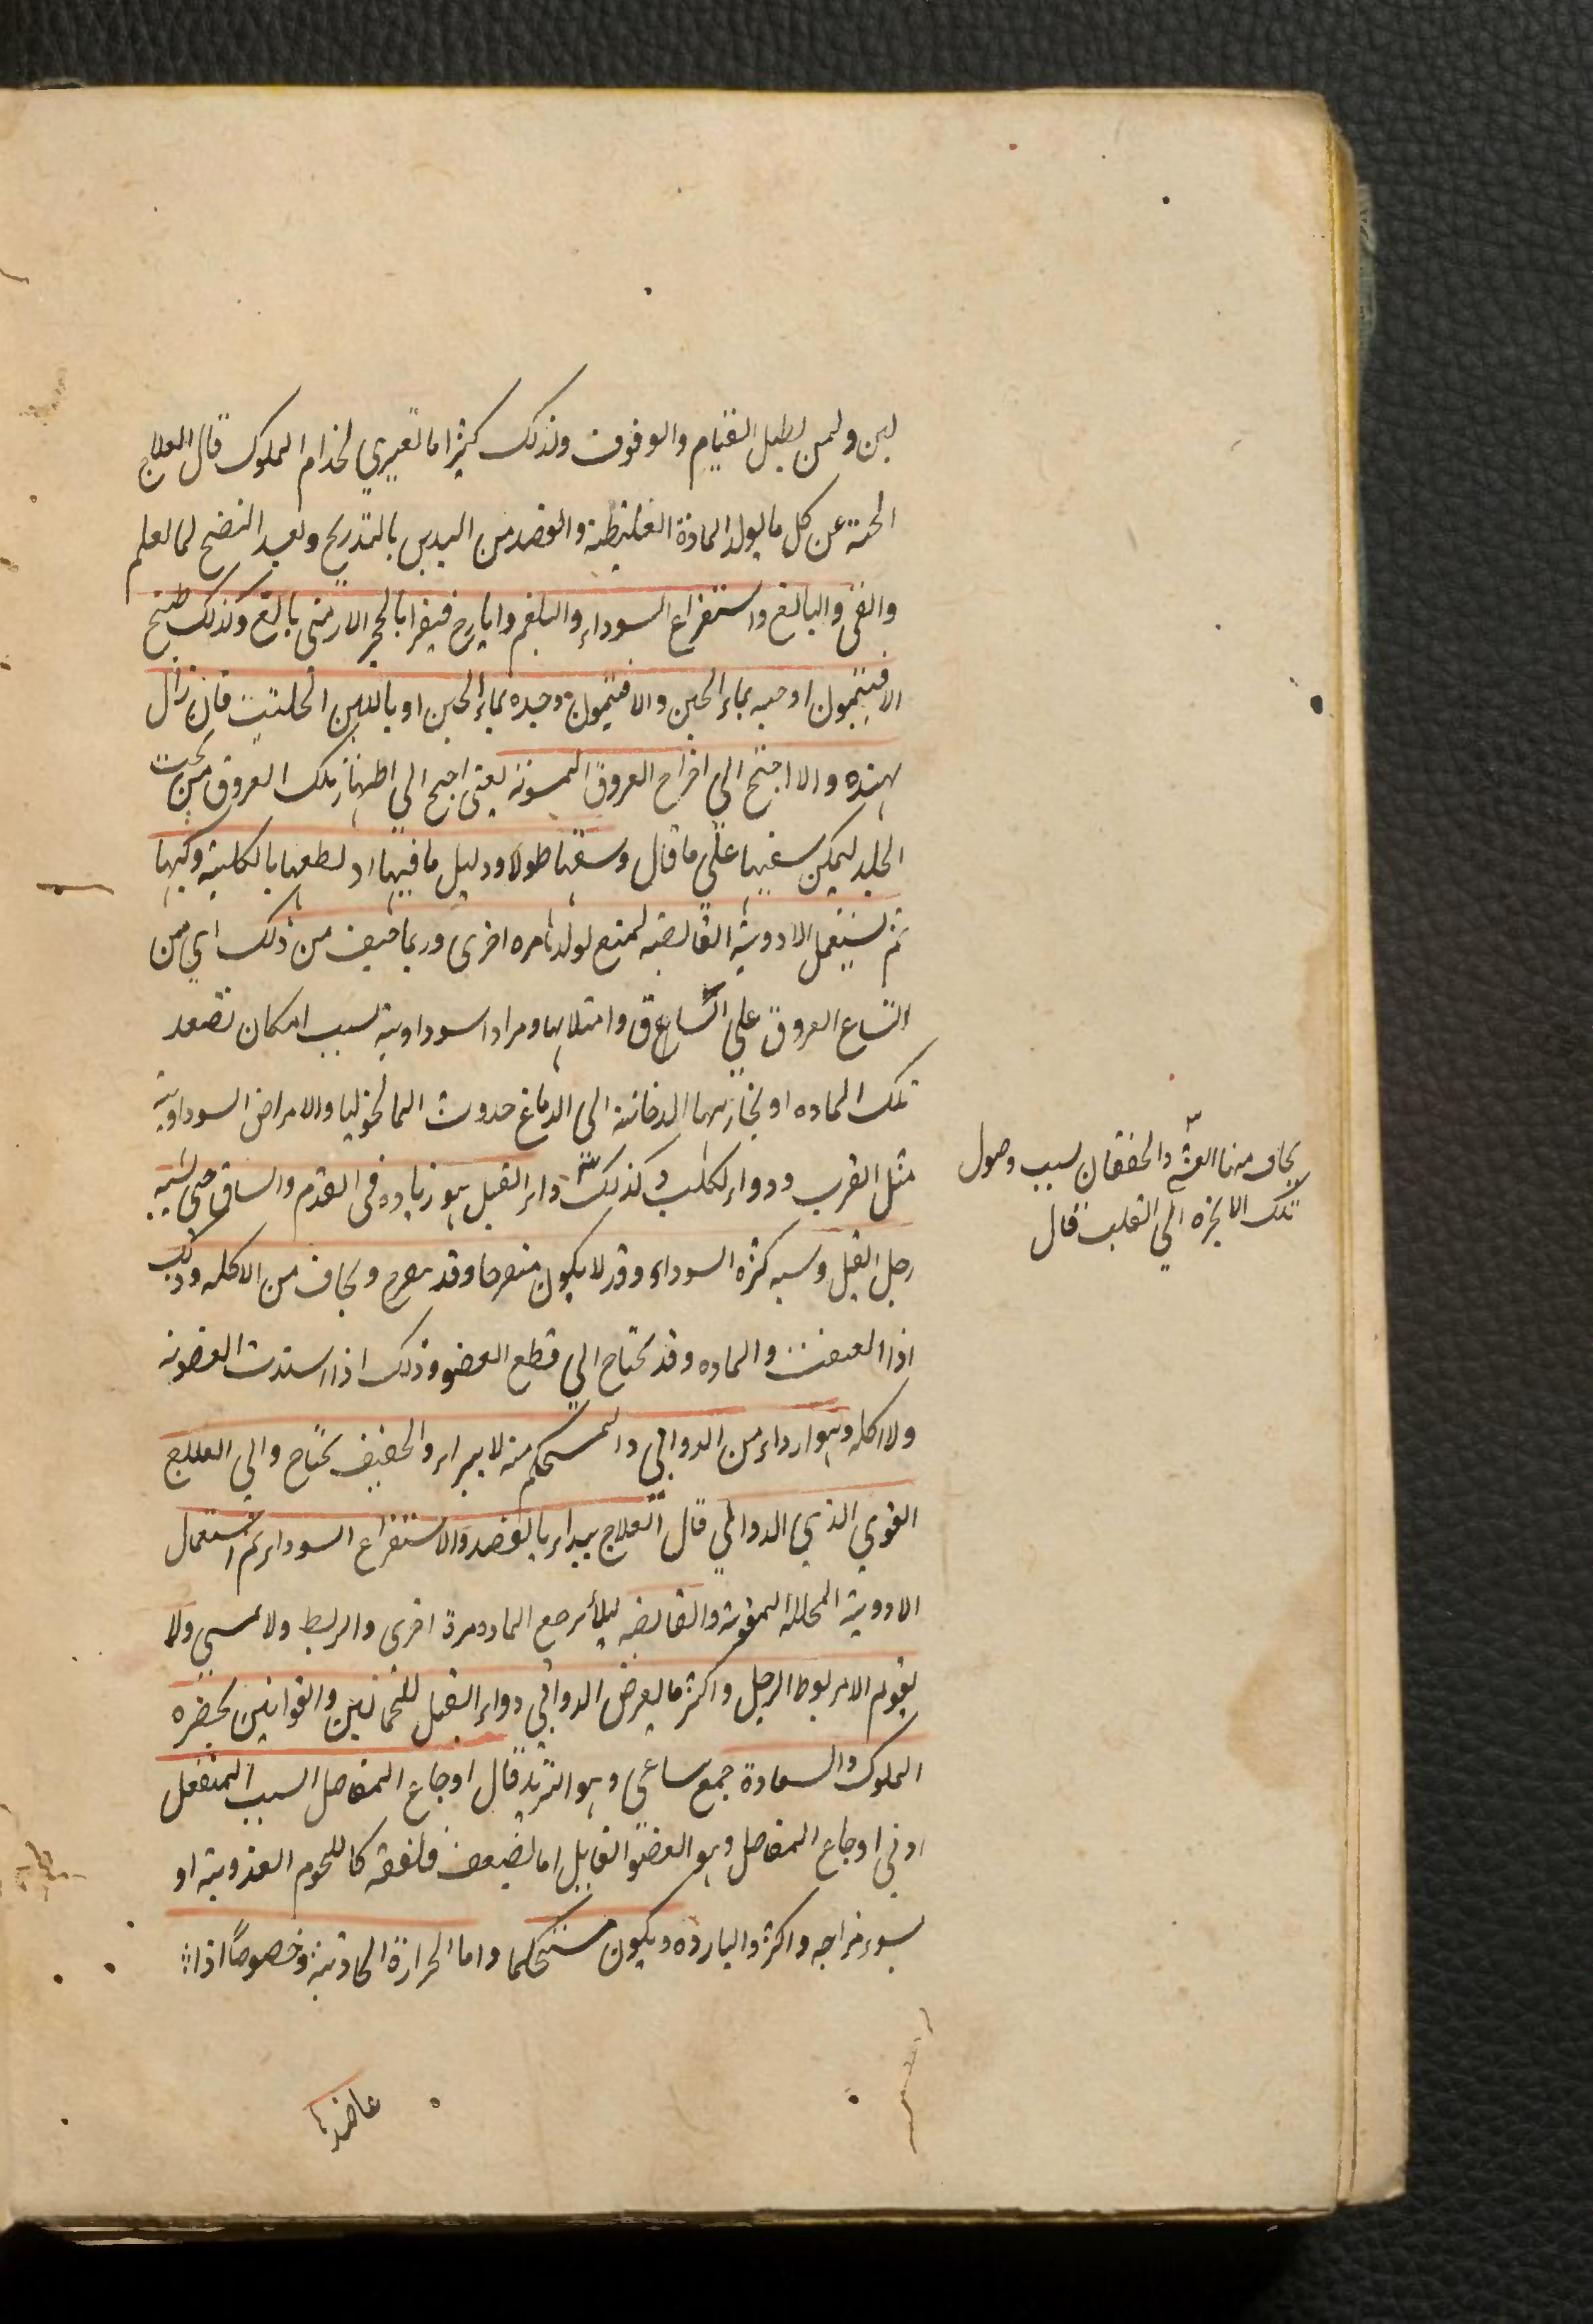 لبن ولمن يطيل القيام والوقوف ولذلك كثيرا ما تعتري لخدام الملوك قال العلاج
الحمية عن كل ما يولد المادة الغليظة والفصد من اليدين بالتدريج وبعد النضج لما تعلم
والقئ والبالغ واستفراغ السوداء والبلغم وايارج فيقرا بالحجر الارمني بالغ وكذلك طبيخ
الافتيمون او حبه بماء الجبن والافتيمون وحده بماء الجبن او باللبن الحليب فان زال
بهذه والا احتيج الي اخراج العروق يعني احتيج الي اظهار تلك العروق من تحت
الجلد ليمكن سقيها علي ما قال وسقها طولا ما فيها او لطعها بالكلية وكيها
ثم يستعمل الادوية القابضة لمنع تولدها مرة اخرى وربما خيف من ذلك اي من
اتساع العروق علي الساق وامتلائها ومرادا سوداوية بسبب امكان تصعد
تلك المادة او بخاريتها الدخانية الى الدماغ حدوث الماليخوليا والامراض السوداوية
مثل القرب ودواء الكلب وكذلك داء الفيل هو زيادة في القدم والساق حتى يشبه
رجل الفيل وسببه كثرة السوداء وقد لا يكون متقرحا وقد يتقرح ويخاف من الاكلة وذلك
اذا العفنت والمادة وقد يحتاج الي قطع العضو وذلك اذا اشتدت العفونة
ولاكله وهو ارداء من الدوالي والمستحكم منه لا يبراء والخفيف يحتاج والي العلاج
القوي الذي الدوالي قال العلاج يبداء بالفصد والاستفراغ السوداء ثم استعمال
الادوية المحللة المقوية والقابضة ليلا يرجع المادة مرة اخرى والربط ولا يمسي ولا
يقوم الا مربوط الرجل واكثر ما يعرض الدوالي دواء الفيل للحمالين والقوانين بحضرة
الملوك والسعادة جمع ساعي وهو البريد قال اوجاع المفاصل السبب المنفعل
اوفي اوجاع المفاصل وهو العضو القابل اما لضعف خلقة كاللحوم الغذوية او
لسوء مزاجه واكثر والباردة ويكون مستحكما واما الحرارة الحادثة وخصوصاً اذا
عاضدها
يخاف منها الغشي والخفقان بسبب وصول
تلك الابخرة الي القلب قال